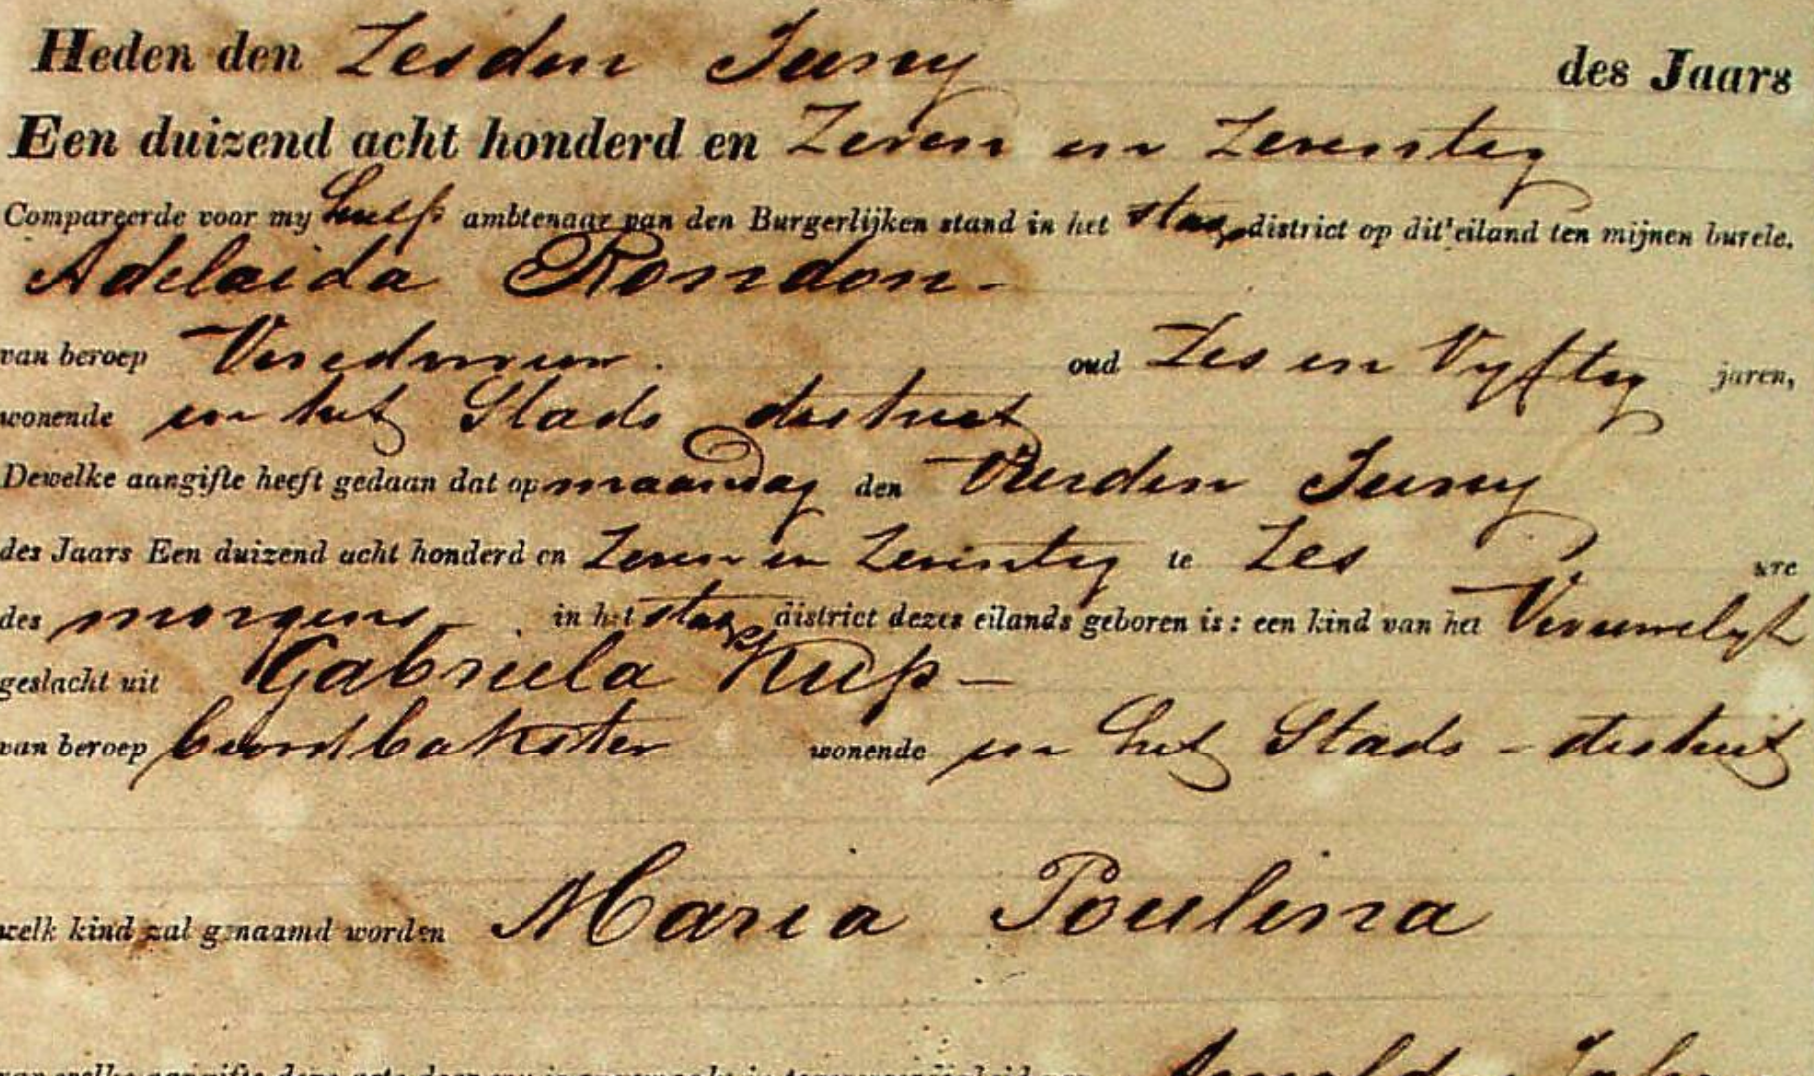 Heden den Zesden Juny des Jaars
Een duizend acht honderd en Zeven en Zeventig
Compareerde voor my hulp ambtenaar van den Burgerlijken stand in het stads district op dit eiland ten mijnen burele.
Adelaida Rondon
van beroep oud Zes en Vyftig jaren,
wonende in het Stads district
Dewelke aangifte heeft gedaan dat op maandag den Vierden Juny
des Jaars Een duizend acht honderd en Zeven en Zeventig te Zes ure
des morgens in het stads district dezes eilands geboren is: een kind van het Vrouwelyk
geslacht uit Gabriela
van beroep wonende in het Stads-district
welk kind zal genaamd worden Maria Poulina
van welke aangifte deze acte door my is opgemaakt in tegenwoordigheid van Arnold